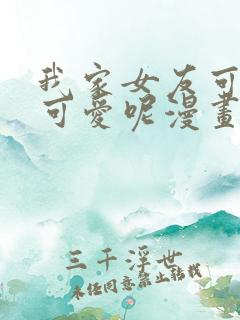 我家女友可
可愛呢漫畫
三千浮世
未经同意禁止转载